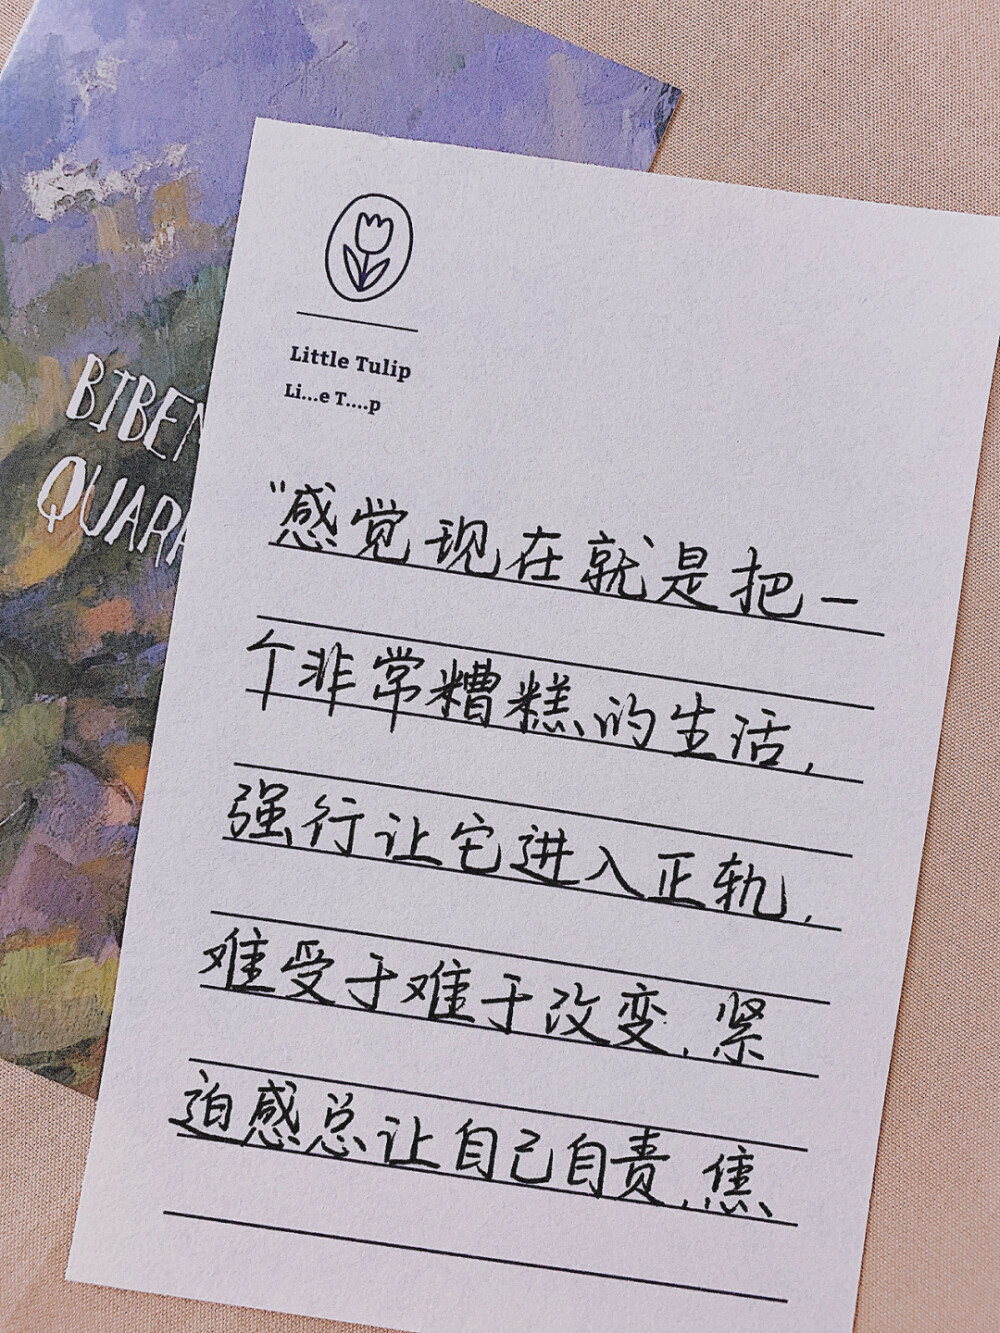 BIBEN
QUAR
Little Tulip
Li...e T....p
“感觉现在就是把一
个非常糟糕的生活,
强行让它进入正轨,
难受于难于改变,紧
迫感总让自己自责,焦